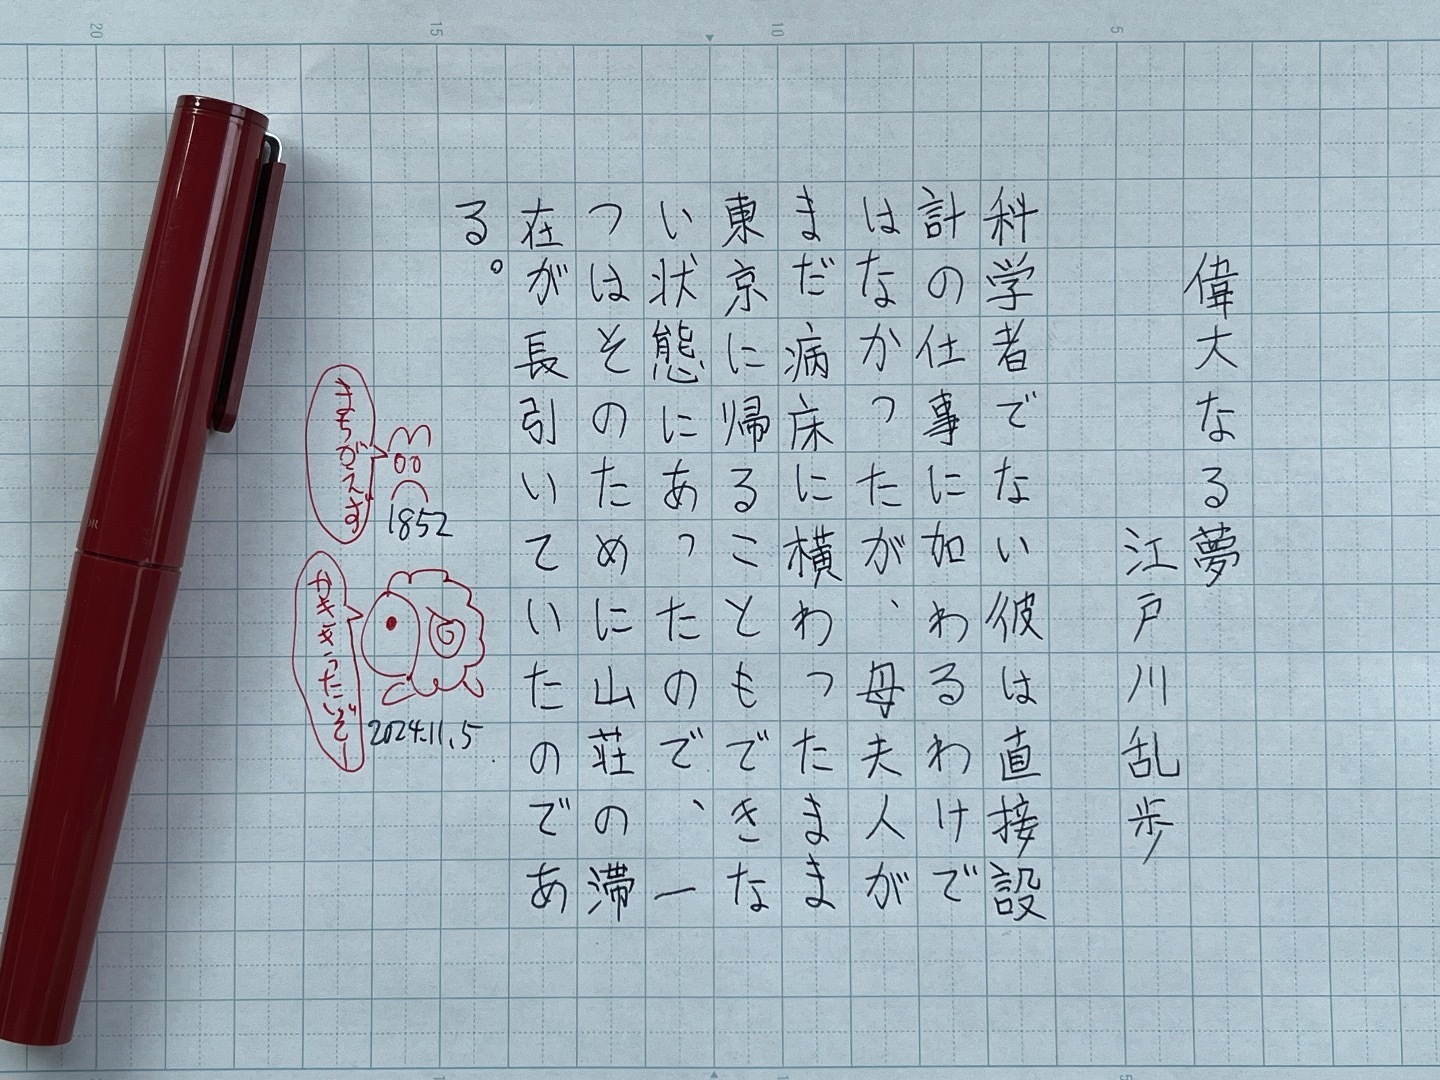 偉大なる夢
江戸川乱歩
科学者でない彼は直接設
計の仕事に加わるわけで
はなかったが、母夫人が
まだ病床に横わったまま
東京に帰ることもできな
い状態にあったので、一
つはそのために山荘の滞
在が長引いていたのであ
る。
まちがえず
1852
かききったぞー
2024.11.5
20
15
10
5